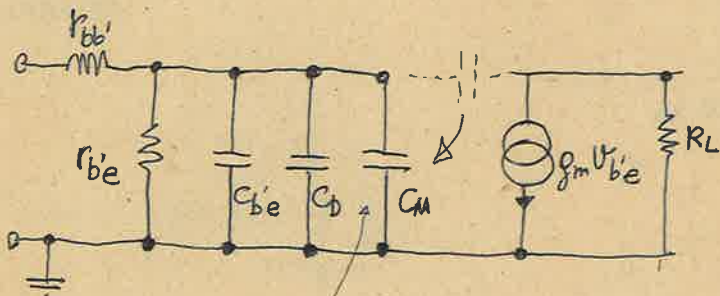 rbb'
rb'e
Cb'e
CD
CM
gmVb'e
RL